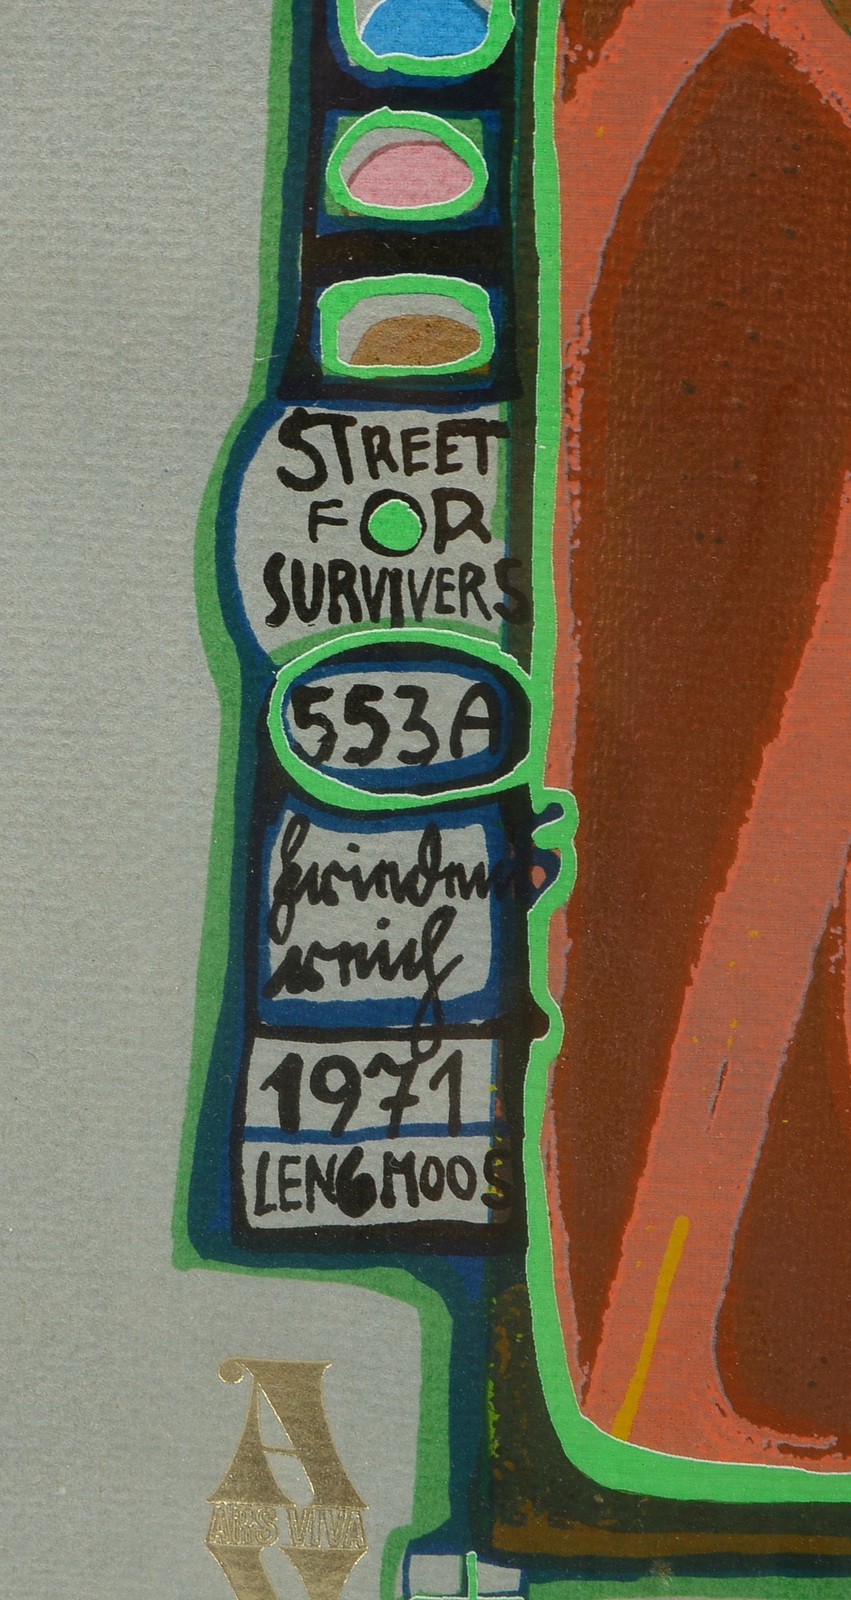 STREET
FOR
SURVIVERS
553A
Frieden
reich
1971
LENGMOOS
A
ARS VIVA